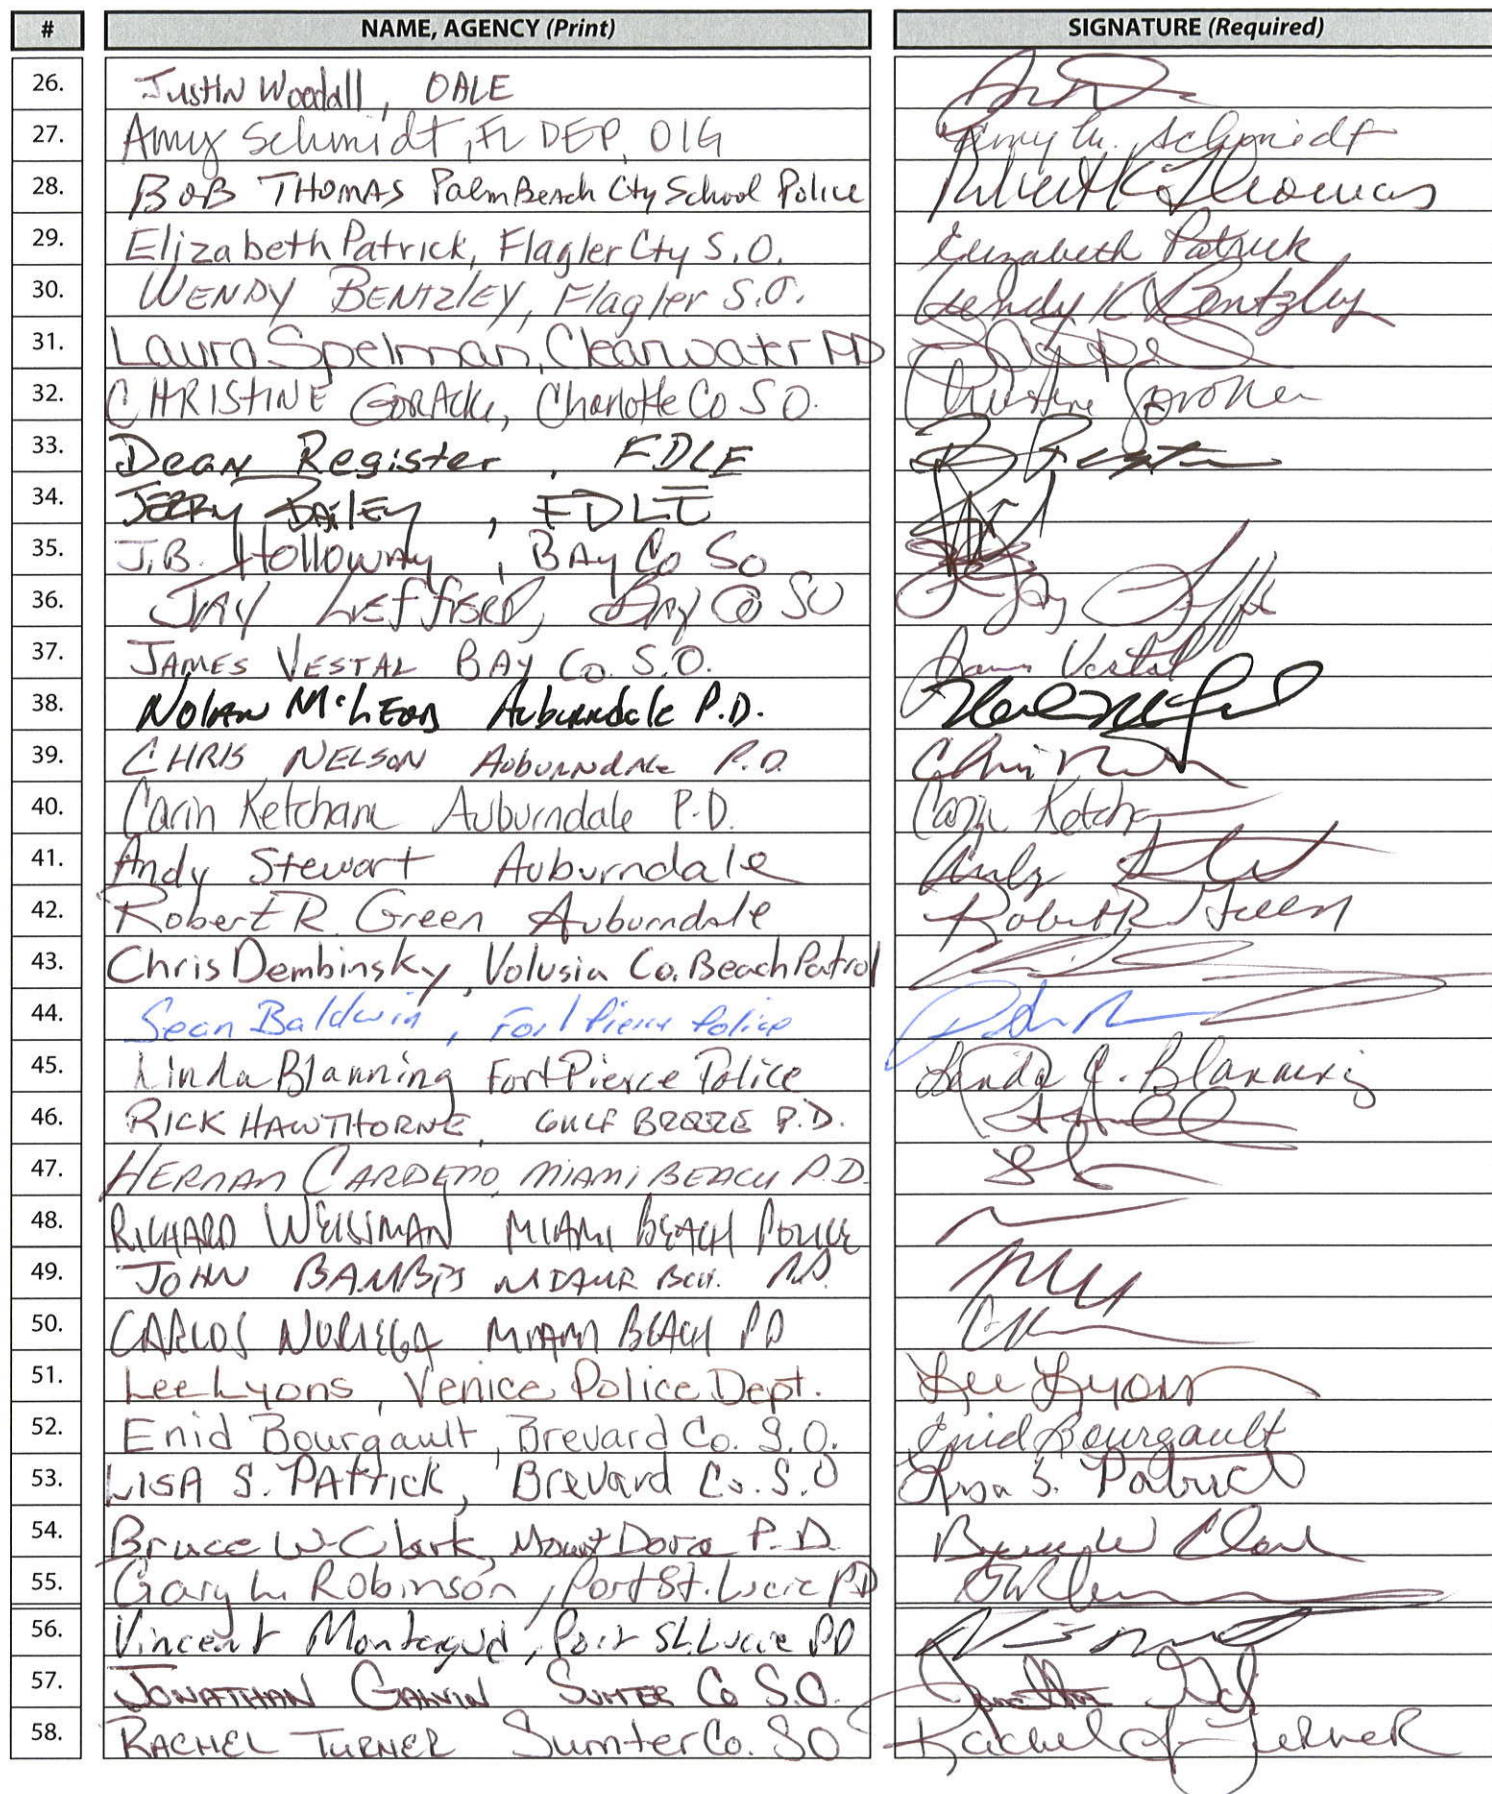 # NAME, AGENCY (Print) SIGNATURE (Required)
26. Justin Woodall, OALE
27. Amy Schmidt, FL DEP, OIG Amy M. Schmidt
28. BOB THOMAS Palm Beach Cty School Police Robert K. Thomas
29. Elizabeth Patrick, Flagler Cty S.O. Elizabeth Patrick
30. WENDY BENTZLEY, Flagler S.O. Wendy K Bentzley
31. Laura Spelman, Clearwater PD
32. CHRISTINE Charlotte Co SO. Christine
33. Dean Register, FDLE
34. JERRY BAILEY, FDLE
35. J.B. Holloway, BAY Co So
36. JAY BAY Co SO Jay
37. JAMES VESTAL BAY Co. S.O. James Vestal
38. NOLAN McLEOD Auburndale P.D.
39. CHRIS NELSON AUBURNDALE P.D. Chris
40. Carin Ketcham Auburndale P.D. Carin Ketcham
41. Andy Stewart Auburndale Andy
42. Robert R. Green Auburndale Robert R Green
43. Chris Dembinsky, Volusia Co. Beach Patrol
44. Sean Baldwin, Fort Pierce Police
45. Linda Blanning Fort Pierce Police Linda Blanning
46. RICK HAWTHORNE, GULF BREEZE P.D.
47. HERNAN CARDENO, MIAMI BEACH P.D.
48. RICHARD WEISSMAN MIAMI BEACH POLICE
49. JOHN MIAMI BCH. P.D.
50. CARLOS NORIEGA MIAMI BEACH PD
51. Lee Lyons, Venice Police Dept. Lee Lyons
52. Enid Bourgault, Brevard Co. S.O. Enid Bourgault
53. LISA S. PATrick, Brevard Co. S.O Lisa S. Patrick
54. Bruce W Clark, Mount Dora P.D. Bruce W Clark
55. Gary L. Robinson, Port St. Lucie PD
56. Vincent Port St. Lucie PD
57. JONATHAN GALVIN SUMTER Co S.O. Jonathan
58. RACHEL TURNER Sumter Co. SO Rachel Turner